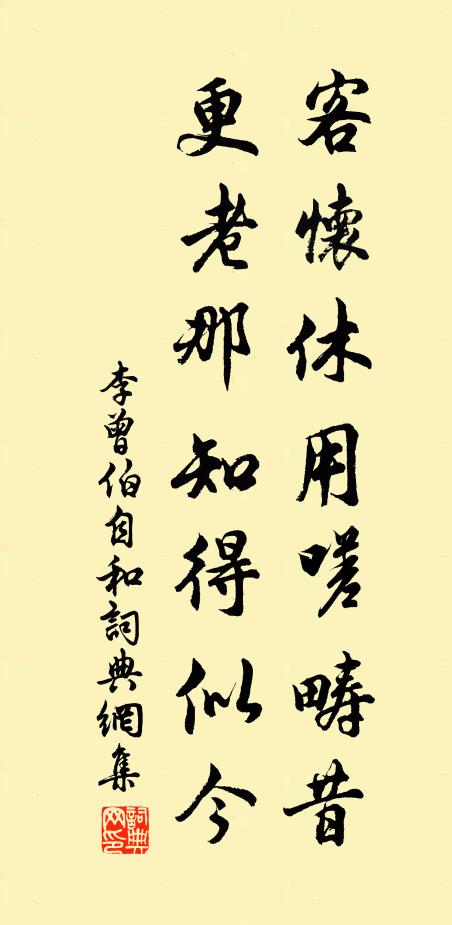 客懷休用嗟疇昔
更老那知得似今
李曾伯自和詞典網集
詞典網印